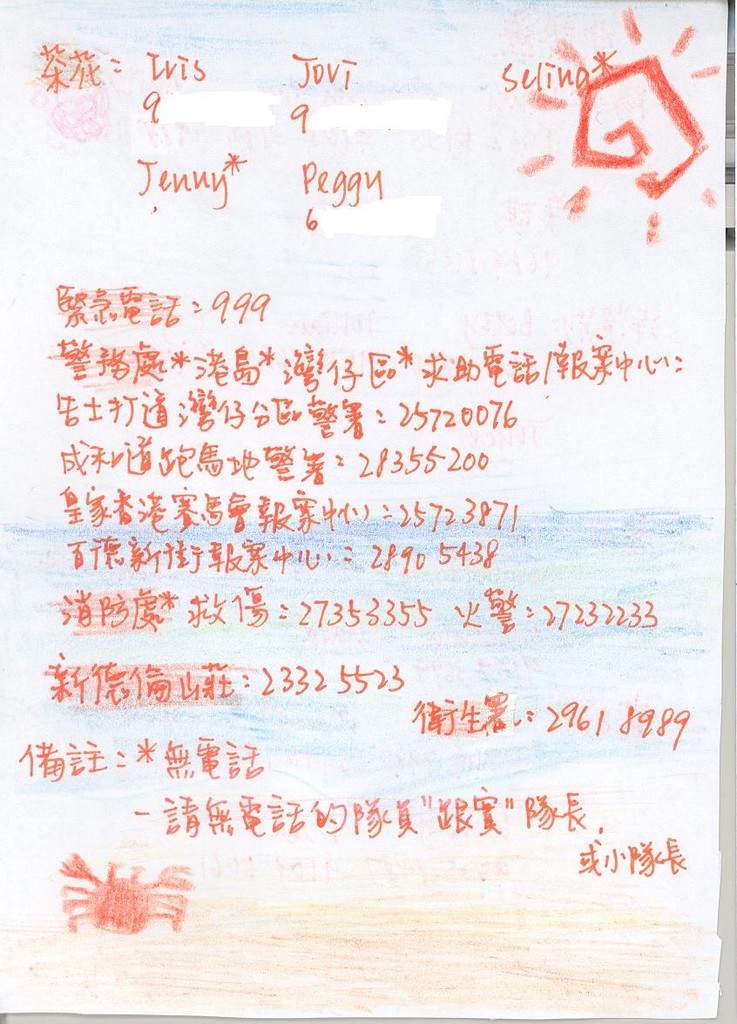 茶花：Iris Jovi Selina*
9 9
Jenny* Peggy
6
緊急電話：999
警務處*港島*灣仔區*求助電話/報案中心：
告士打道灣仔分區警署：25720076
成和道跑馬地警署：28355200
皇家香港賽馬會報案中心：25723871
百德新街報案中心：2890 5438
消防處*救傷：27353355 火警：27232233
新德倫山莊：2332 5523
衛生署：2961 8989
備註：*無電話
－請無電話的隊員"跟實"隊長，
或小隊長